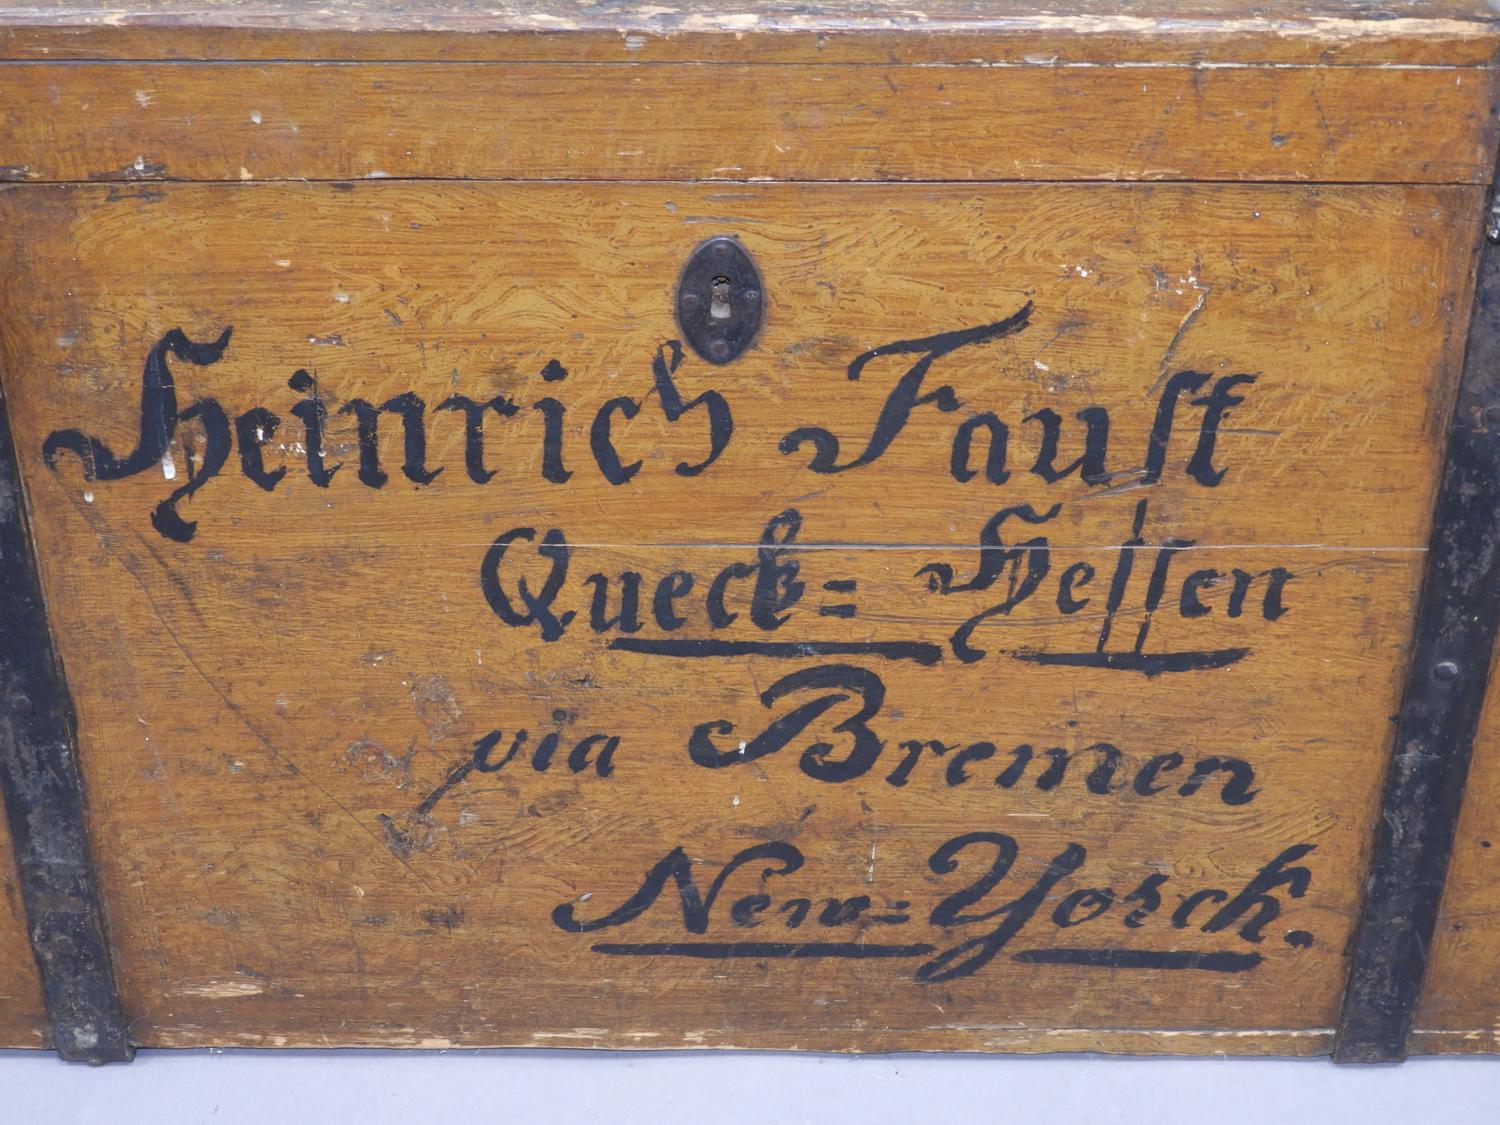 Heinrich Faust
Queck= Hessen
via Bremen
New=Yorck.